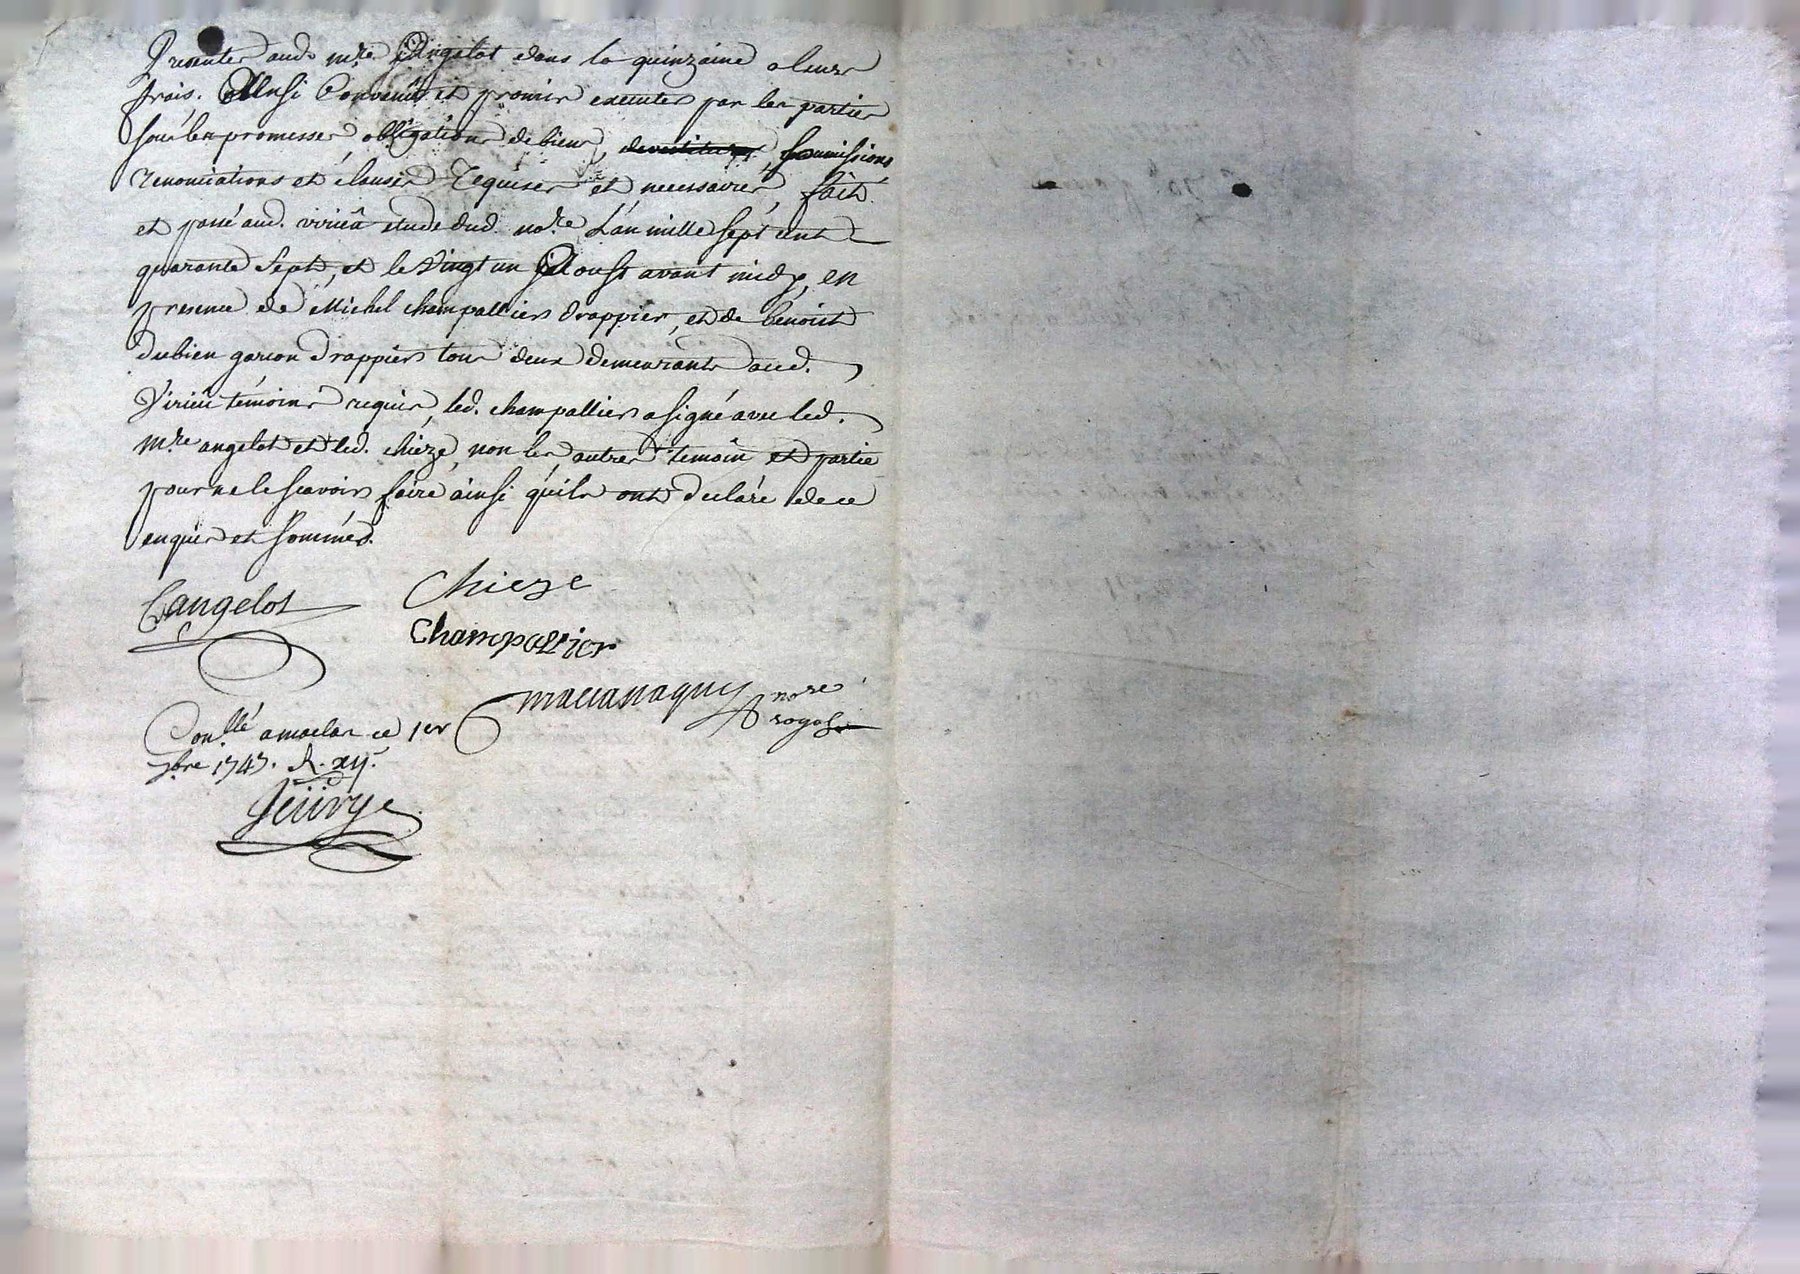 Presenter aud. mre Angelot dans la quinzaine a leurs
frais. Ainsi Convenu et promis executer par les parties
sous les promesses obligations de biens, soumissions
renonciations et clauses Requises et necessaires, fait
et passé aud. virieu etude dud. nore L'an mille sept cent
quarante sept, et le vingt un Aoust avant midy, en
presence de Michel Champallier drappier, et de benoist
dubien garcon drappier tous deux demeurants aud.
Virieu témoins requis, led. champallier a signé avec led.
mre angelot et led. chieze, non les autres temoin et partie
pour ne le scavoir faire ainsi qu'ils ont declaré de ce
enquis et sommés.
Cangelot
Chieze
Champallier
nore
rogol
Conllé a ce 1er
7bre 1747. R. xij s.